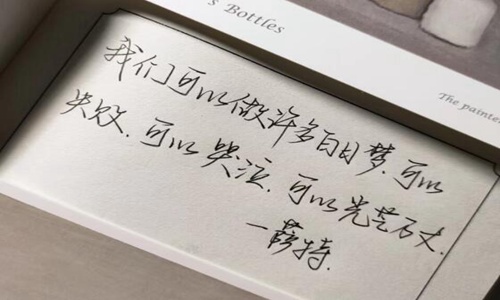 s Bottles
The painte
我们可以做许多白日梦.可以
失败.可以哭泣.可以光芒万丈.
—萨特.